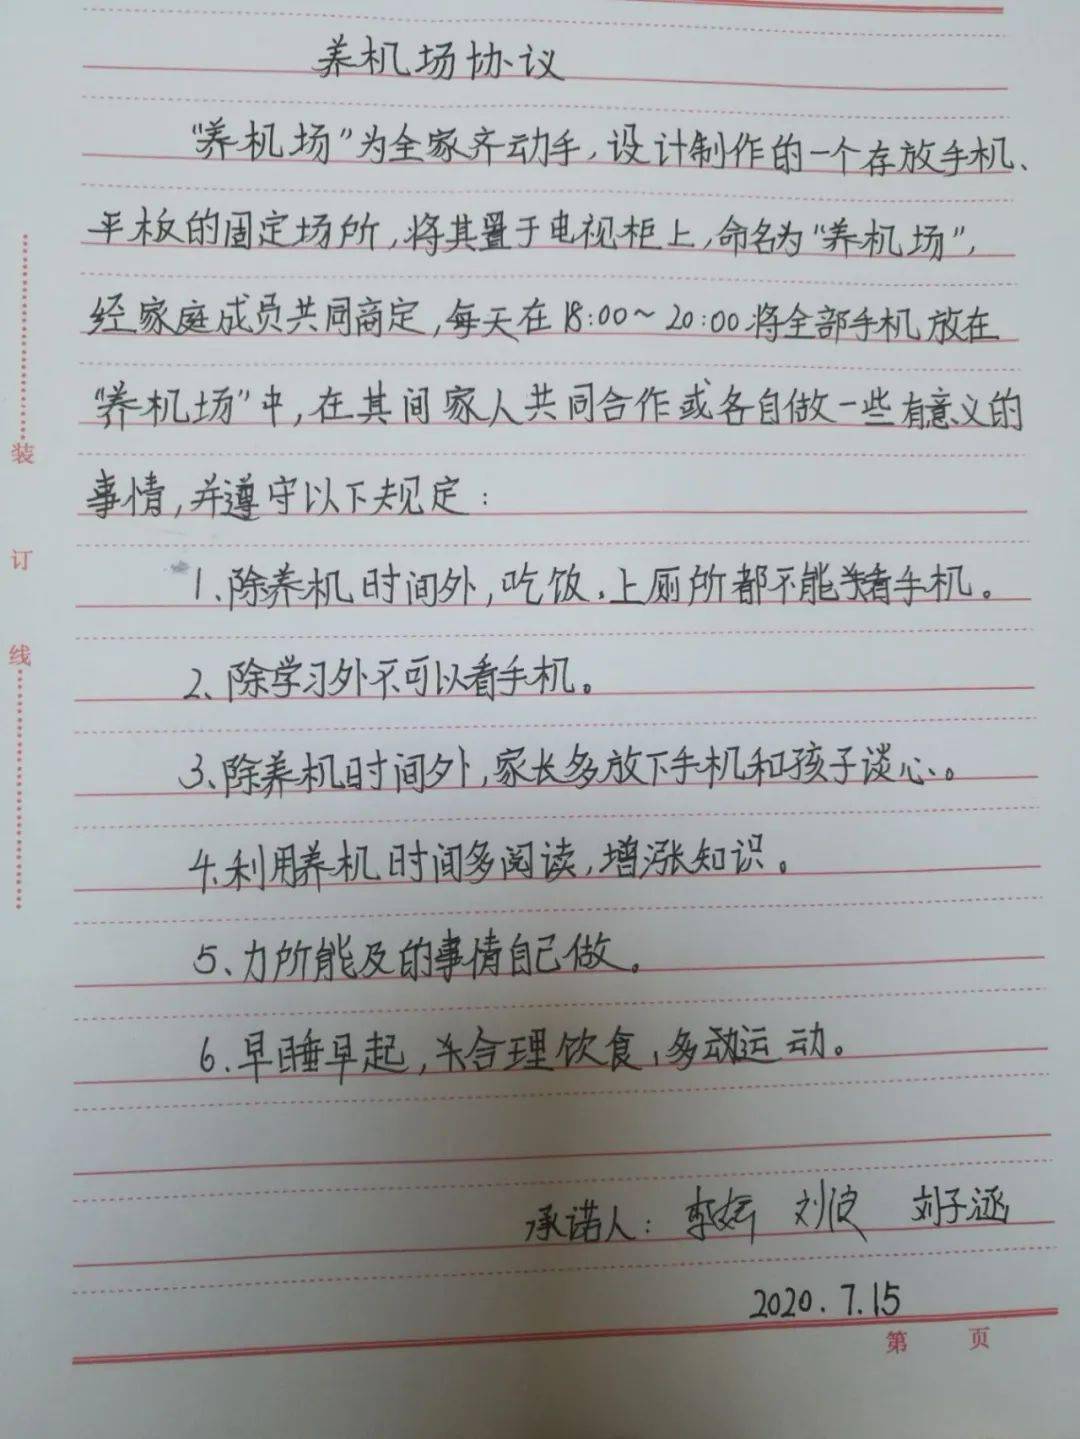 养机场协议
“养机场”为全家齐动手,设计制作的一个存放手机、
平板的固定场所,将其置于电视柜上,命名为“养机场”,
经家庭成员共同商定,每天在18:00~20:00将全部手机放在
“养机场”中,在其间家人共同合作或各自做一些有意义的
事情,并遵守以下规定:
1、除养机时间外,吃饭、上厕所都不能看手机。
2、除学习外不可以看手机。
3、除养机时间外,家长多放下手机和孩子谈心。
4、利用养机时间多阅读,增涨知识。
5、力所能及的事情自己做。
6、早睡早起,合理饮食,多动运动。
承诺人: 刘波 刘子涵
2020.7.15
第 页
装
订
线